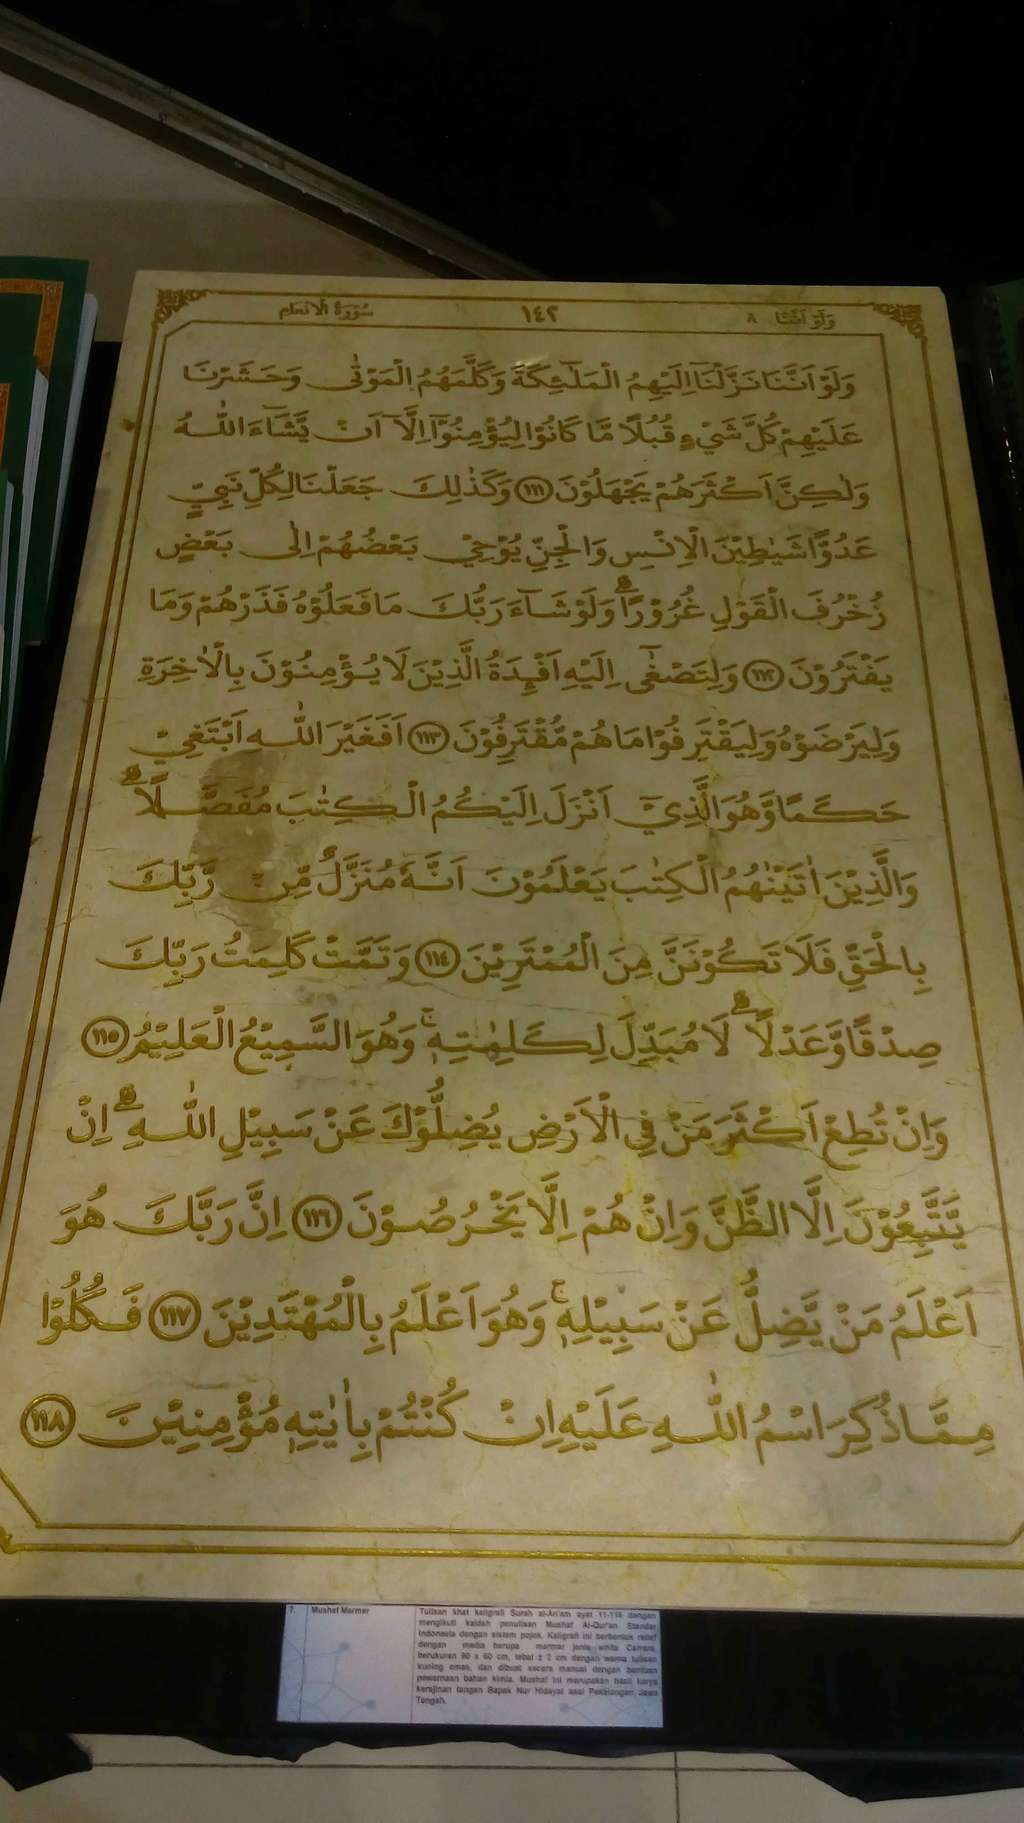 وَلَوْ اَنَّنَا ٨
١٤٢
سُوْرَةُ الْاَنْعَامِ
وَلَوْ اَنَّنَا نَزَّلْنَآ اِلَيْهِمُ الْمَلٰۤىِٕكَةَ وَكَلَّمَهُمُ الْمَوْتٰى وَحَشَرْنَا
عَلَيْهِمْ كُلَّ شَيْءٍ قُبُلًا مَّا كَانُوْا لِيُؤْمِنُوْٓا اِلَّآ اَنْ يَّشَاۤءَ اللّٰهُ
وَلٰكِنَّ اَكْثَرَهُمْ يَجْهَلُوْنَ ١١١ وَكَذٰلِكَ جَعَلْنَا لِكُلِّ نَبِيٍّ
عَدُوًّا شَيٰطِيْنَ الْاِنْسِ وَالْجِنِّ يُوْحِيْ بَعْضُهُمْ اِلٰى بَعْضٍ
زُخْرُفَ الْقَوْلِ غُرُوْرًا ۗ وَلَوْ شَاۤءَ رَبُّكَ مَا فَعَلُوْهُ فَذَرْهُمْ وَمَا
يَفْتَرُوْنَ ١١٢ وَلِتَصْغٰٓى اِلَيْهِ اَفْـِٕدَةُ الَّذِيْنَ لَا يُؤْمِنُوْنَ بِالْاٰخِرَةِ
وَلِيَرْضَوْهُ وَلِيَقْتَرِفُوْا مَا هُمْ مُّقْتَرِفُوْنَ ١١٣ اَفَغَيْرَ اللّٰهِ اَبْتَغِيْ
حَكَمًا وَّهُوَ الَّذِيْٓ اَنْزَلَ اِلَيْكُمُ الْكِتٰبَ مُفَصَّلًا ۗ
وَالَّذِيْنَ اٰتَيْنٰهُمُ الْكِتٰبَ يَعْلَمُوْنَ اَنَّهٗ مُنَزَّلٌ مِّنْ رَّبِّكَ
بِالْحَقِّ فَلَا تَكُوْنَنَّ مِنَ الْمُمْتَرِيْنَ ١١٤ وَتَمَّتْ كَلِمَتُ رَبِّكَ
صِدْقًا وَّعَدْلًا ۗ لَا مُبَدِّلَ لِكَلِمٰتِهٖ ۚ وَهُوَ السَّمِيْعُ الْعَلِيْمُ ١١٥
وَاِنْ تُطِعْ اَكْثَرَ مَنْ فِى الْاَرْضِ يُضِلُّوْكَ عَنْ سَبِيْلِ اللّٰهِ ۗ اِنْ
يَّتَّبِعُوْنَ اِلَّا الظَّنَّ وَاِنْ هُمْ اِلَّا يَخْرُصُوْنَ ١١٦ اِنَّ رَبَّكَ هُوَ
اَعْلَمُ مَنْ يَّضِلُّ عَنْ سَبِيْلِهٖ ۚ وَهُوَ اَعْلَمُ بِالْمُهْتَدِيْنَ ١١٧ فَكُلُوْا
مِمَّا ذُكِرَ اسْمُ اللّٰهِ عَلَيْهِ اِنْ كُنْتُمْ بِاٰيٰتِهٖ مُؤْمِنِيْنَ ١١٨
7. Mushaf Marmer
Tulisan khat kaligrafi Surah al-An'am ayat 11-118 dengan
mengikuti kaidah penulisan Mushaf Al-Qur'an Standar
Indonesia dengan sistem pojok. Kaligrafi ini berbentuk relief
dengan media berupa marmer jenis white Carrara,
berukuran 90 x 60 cm, tebal ± 2 cm dengan warna tulisan
kuning emas, dan dibuat secara manual dengan bantuan
pewarnaan bahan kimia. Mushaf ini merupakan hasil karya
kerajinan tangan Bapak Nur Hidayat asal Pekalongan Jawa
Tengah.